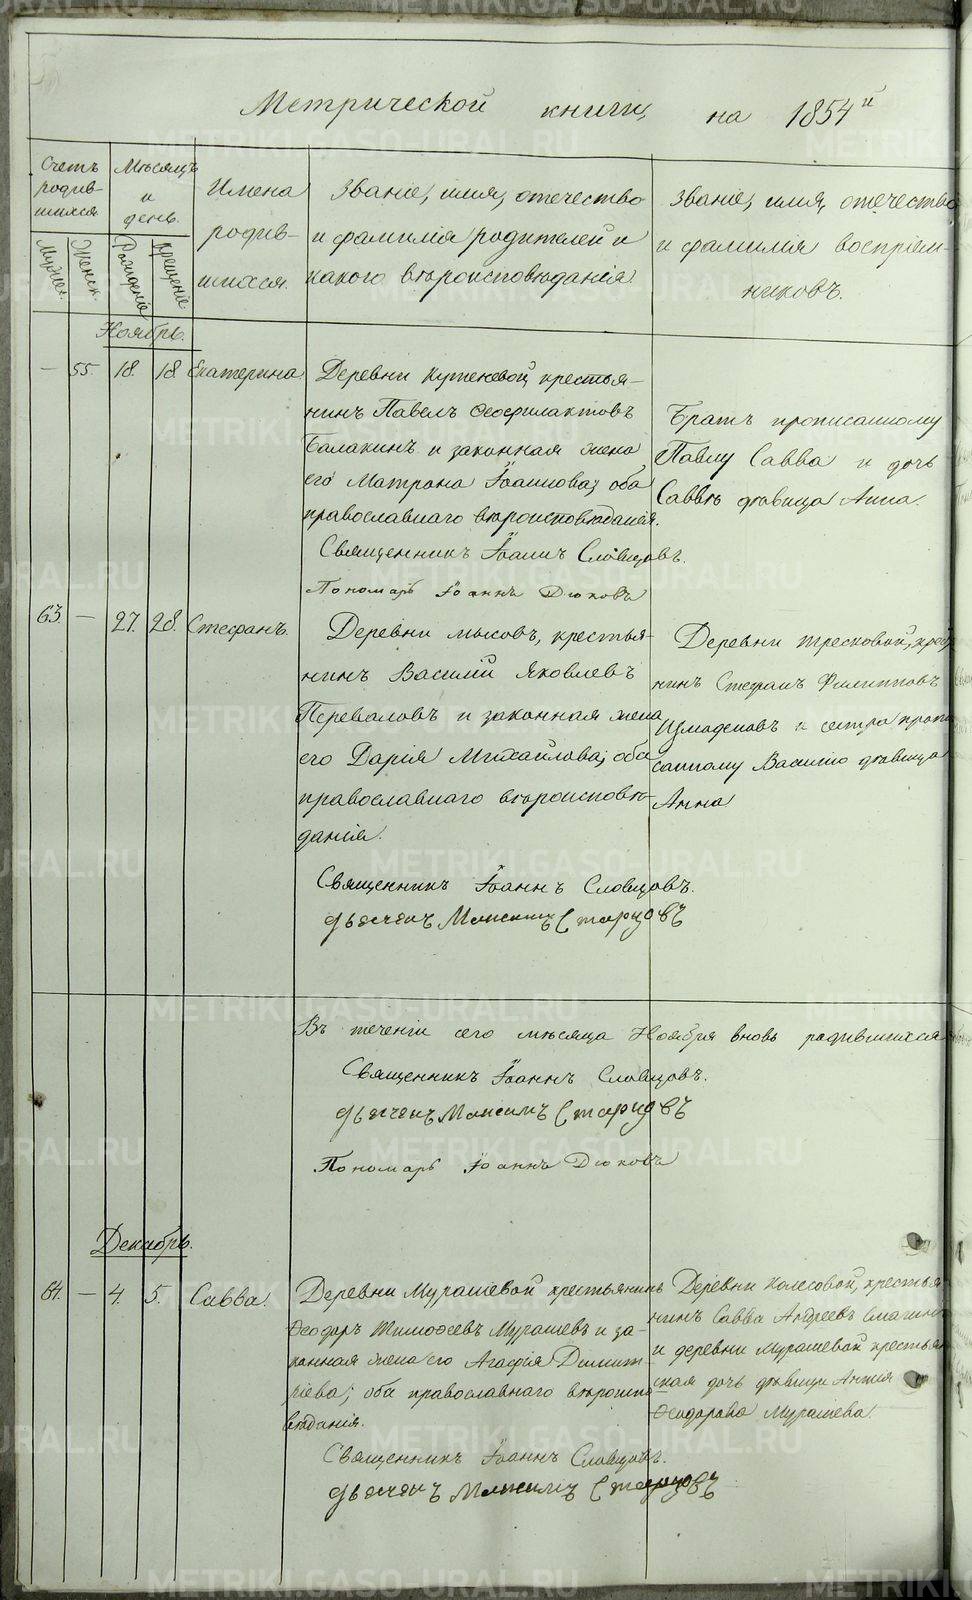 Метрической книги, на 1854й
Счетъ родив-шихся
Мѣсяцъ и день.
Имена родив-шихся.
Званіе, имя, отечество
и фамилія родителей и
какого вѣроисповѣданія.
Званіе, имя, отечество
и фамилія воспріем-
никовъ.
Мужес.
Женск.
Рожденіе
Крещеніе
Ноябрь.
— 55 18. 18. Екатерина
Деревни крестья-
нинъ Павелъ Ѳеофилактовъ
Балакинъ и законная жена
его Матрона Іоаннова; оба
православнаго вѣроисповѣданія.
Священникъ Іоаннъ Словцовъ.
Пономарь Іоаннъ Дюковъ
Братъ прописанному
Павлу Савва и дочь
Саввы дѣвица Анна.
63. — 27. 28. Стефанъ.
Деревни крестья-
нинъ Василій Яковлевъ
Переваловъ и законная жена
его Дарія Михайлова; оба
православнаго вѣроисповѣ-
данія.
Священникъ Іоаннъ Словцовъ.
Дьячекъ Максимъ Старцовъ
Деревни кресть
нинъ Стефанъ Филипповъ
и сестра пропи
санному Василію дѣвица
Анна
Въ теченіи сего мѣсяца Ноября вновь родившихся
Священникъ Іоаннъ Словцовъ.
Дьячекъ Максимъ Старцовъ
Пономарь Іоаннъ Дюковъ
Декабрь.
64. — 4. 5. Савва.
Деревни Мурашевой крестьянинъ
Ѳеодоръ Тимоѳеевъ Мурашевъ и за-
конная жена его Агафія Димит-
ріева; оба православнаго вѣроиспо
вѣданія.
Священникъ Іоаннъ Словцовъ.
Дьячекъ Максимъ Старцовъ
Деревни Колесовой, крестья
нинъ Савва Андреевъ
и деревни Мурашевой крестьян
ская дочь дѣвица
Ѳеодорова Мурашева.
METRIKI.GASO-URAL.RU